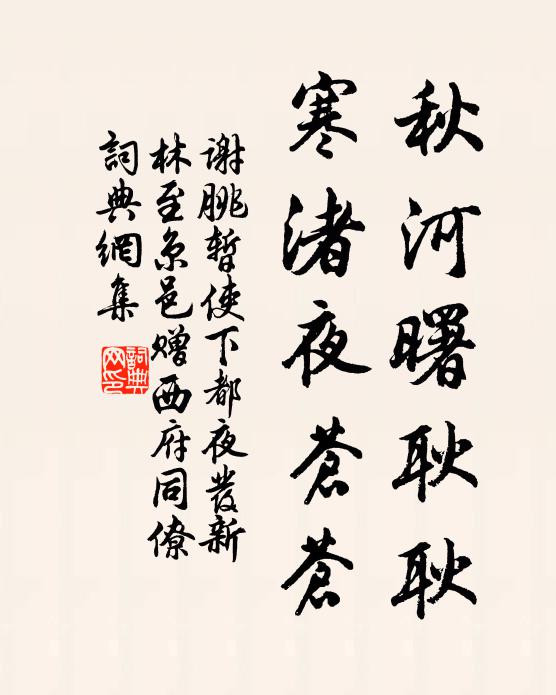 秋河曙耿耿
寒渚夜蒼蒼
謝朓暫使下都夜發新
林至京邑赠西府同僚
詞典網集
詞典
网印